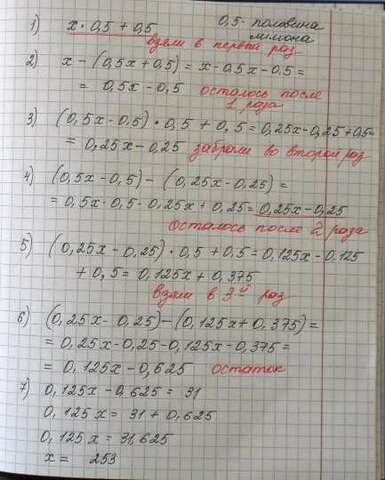 1) x · 0,5 + 0,5
0,5 - половина лимона
взяли в первый раз
2) x - (0,5x + 0,5) = x - 0,5x - 0,5 =
= 0,5x - 0,5 осталось после 1 раза
3) (0,5x - 0,5) · 0,5 + 0,5 = 0,25x - 0,25 + 0,5 =
= 0,25x - 0,25 забрали во второй раз
4) (0,5x - 0,5) - (0,25x - 0,25) =
= 0,5x - 0,5 - 0,25x + 0,25 = 0,25x - 0,25
осталось после 2 раза
5) (0,25x - 0,25) · 0,5 + 0,5 = 0,125x - 0,125
+ 0,5 = 0,125x + 0,375
взяли в 3-й раз
6) (0,25x - 0,25) - (0,125x + 0,375) =
= 0,25x - 0,25 - 0,125x - 0,375 =
= 0,125x - 0,625 остаток
7) 0,125x - 0,625 = 31
0,125x = 31 + 0,625
0,125x = 31,625
x = 253